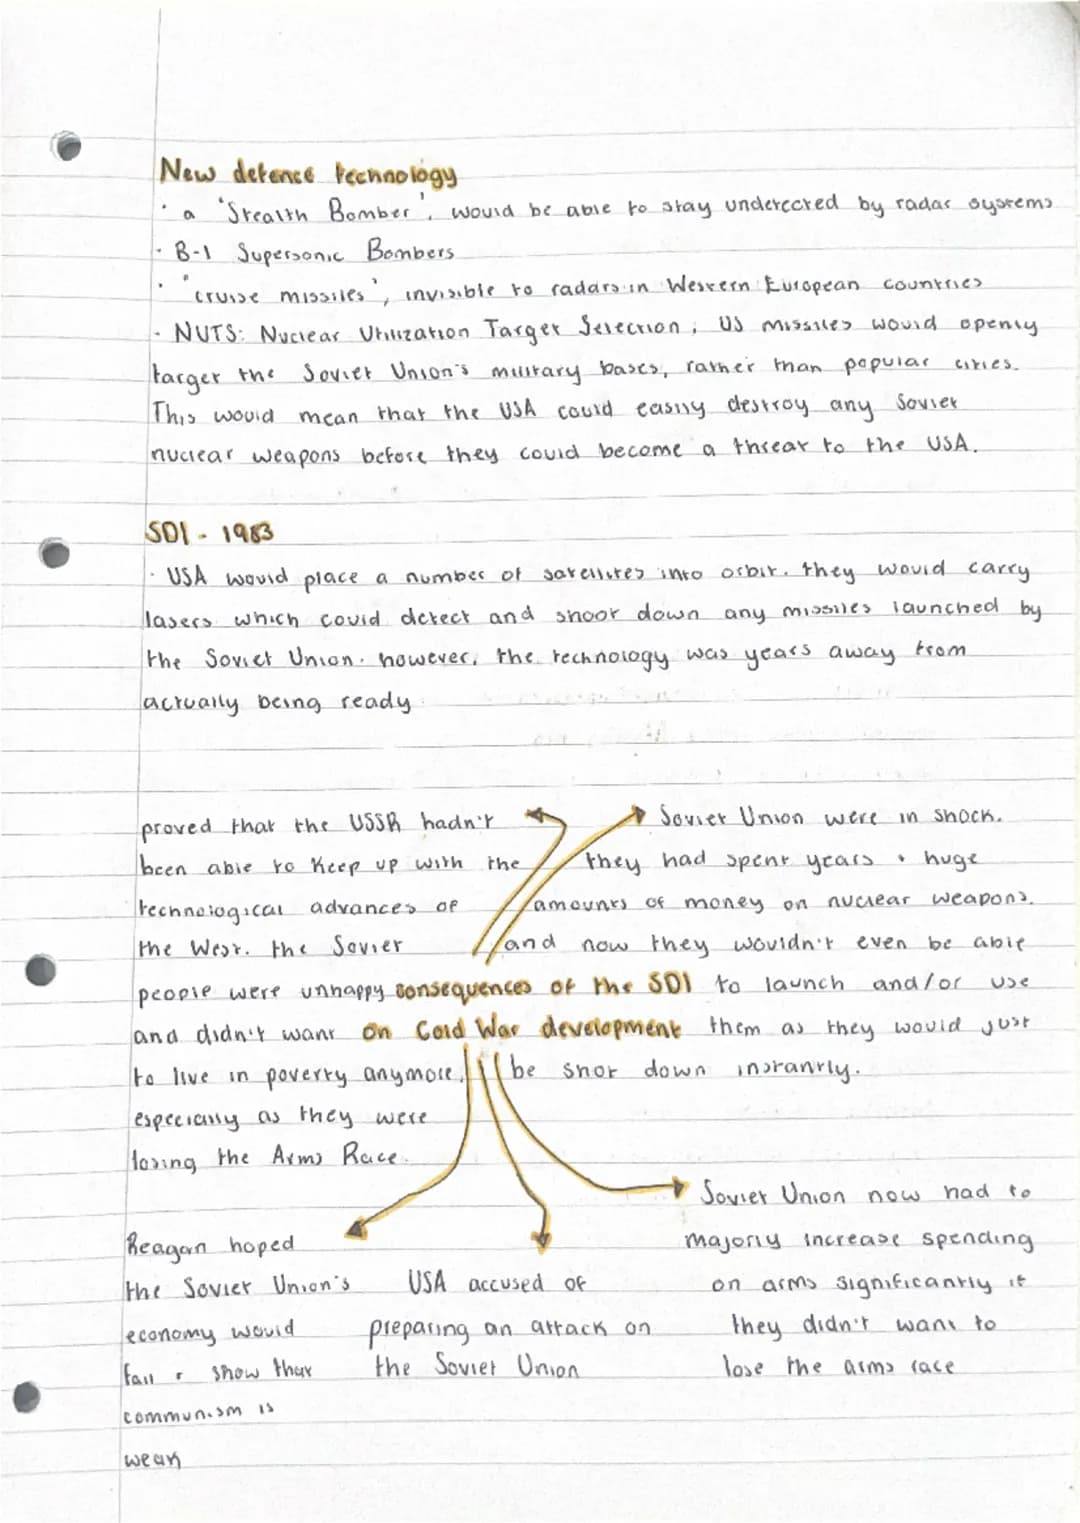 New defence technology
· a 'Stealth Bomber', would be able to stay undetected by radar systems
· B-1 Supersonic Bombers
· "cruise missiles', invisible to radars in Western European countries
· NUTS: Nuclear Utilization Target Selection, US missiles would openly
target the Soviet Union's military bases, rather than popular cities.
This would mean that the USA could easily destroy any Soviet
nuclear weapons before they could become a threat to the USA.
SDI - 1983
· USA would place a number of satellites into orbit. they would carry
lasers which could detect and shoot down any missiles launched by
the Soviet Union. however, the technology was years away from
actually being ready
proved that the USSR hadn't
been able to keep up with the
technological advances of
the West. the Soviet
people were unhappy
and didn't want
to live in poverty anymore,
especially as they were
losing the Arms Race.
Soviet Union were in shock.
they had spent years + huge
amounts of money on nuclear weapons.
and now they wouldn't even be able
to launch and/or use
them as they would just
be shot down instantly.
consequences of the SDI
on Cold War development
Reagan hoped
the Soviet Union's
economy would
fall + show that
communism is
weak
USA accused of
preparing an attack on
the Soviet Union
Soviet Union now had to
majorly increase spending
on arms significantly if
they didn't want to
lose the arms race